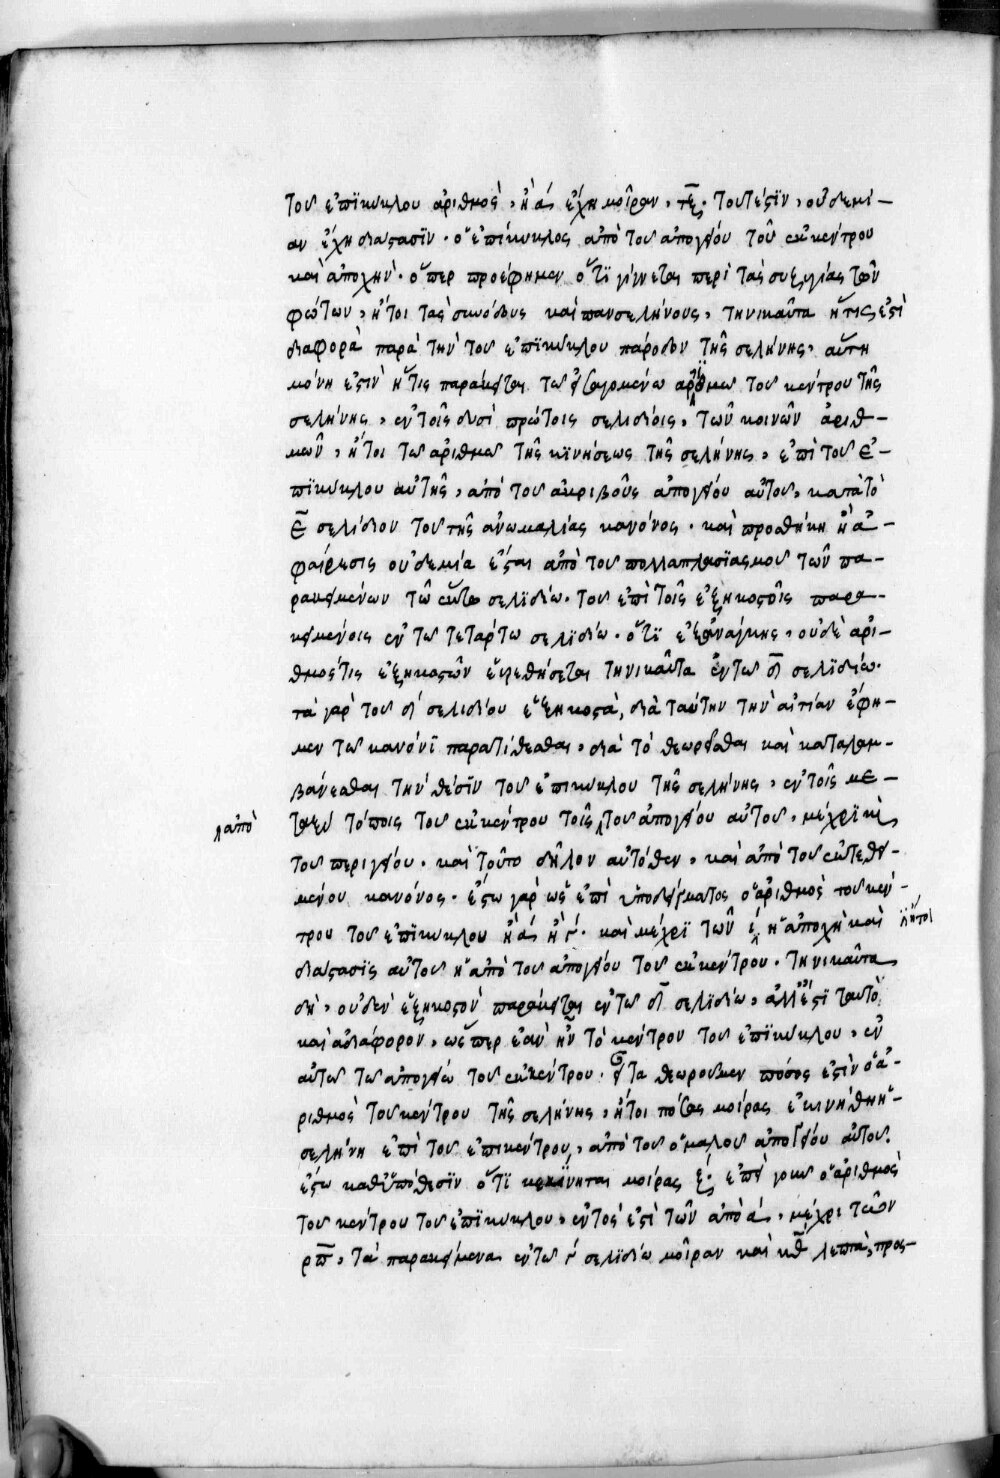 του ἐπϊκύκλου ἀριθμὸς, ἢ ά ἔχη μοῖραν, τξ. τουτέστϊν, οὐδεμί-
αν ἔχη διάστασϊν. ὁ ἐπίκυκλος ἀπὸ του ἀπογείου τοῦ ἐκκέντρου
καὶ ἀποχην. ὅπερ προέφημεν ὅτϊ γίγνεται περὶ τὰς συζυγίας τῶν
φώτων, ἤτοι τὰς συνόδους καὶ πανσελήνους, τηνικαῦτα ἥτις ἐστὶ
διαφορὰ παρὰ τὴν του ἐπϊκύκλου πάροδον τῆς σελήνης. αὕτη
μόνη ἐστὶν ἥτις παράκειται τω εἰσαγομένω ἀριθμω του κέντρου τῆς
σελήνης, ἐν τοῖς δυσὶ πρώτοις σελιδίοις, τῶν κοινῶν ἀριθ-
μῶν, ἤτοι τω ἀριθμω τῆς κϊνήσεως τῆς σελήνης, ἐπὶ του ἐ-
πϊκύκλου αὐτῆς, ἀπὸ του ἀκριβοῦς ἀπογείου αὐτου, κατὰ τὸ
ε σελίδιον του τῆς ἀνωμαλίας κανόνος. καὶ προσθήκη ἢ ἀ-
φαίρεσις οὐδεμία ἔσται ἀπὸ του πολλαπλασϊασμου τῶν πα-
ρακειμένων τῶ σελϊδίω. του ἐπὶ τοῖς ἑξηκοστοῖς παρα-
κειμένοις ἐν τω τετάρτω σελϊδίω. ὅτϊ ἐξανάγκης, οὐδὲ ἀρι-
θμός τις ἑξηκοστῶν εὑρεθήσεται τηνικαῦτα ἐν τω δ σελϊδίω.
τὰ γὰρ του δ σελιδίου ἑξηκοστὰ, διὰ ταύτην τὴν αἰτίαν ἔφη-
μεν τω κανόνϊ παρατίθεσθαι, διὰ τὸ θεωρεῖσθαι καὶ καταλαμ-
βάνεσθαι τὴν θέσϊν του ἐπικύκλου τῆς σελήνης, ἐν τοῖς με-
ταξὺ τόποις του ἐκκέντρου τοῖς του ἀπογείου αὐτου, μέχρϊ καὶ
ἀπὸ
του περιγείου. καὶ τοῦτο δῆλον αὐτόθεν, καὶ ἀπὸ του ἐκτεθει-
μένου κανόνος. ἔστω γὰρ ὡς ἐπὶ ὑποδείγματος ὁ ἀριθμὸς του κέν-
τρου του ἐπϊκύκλου ἢ ά ἢ ϛ. καὶ μέχρϊ τῶν ί ἡ ἀποχὴ καὶ
ἤτοι
διάστασϊς αὐτου ἡ ἀπὸ του ἀπογείου του ἐκκέντρου. τηνικαῦτα
δὴ, οὐδὲν ἑξηκοστὸν παράκειται ἐν τω δ σελϊδίω, ἀλλ' ἔστϊ ταυτὸ
καὶ ἀδιάφορον, ὥσπερ ἐὰν ἦν τὸ κέντρον του ἐπϊκύκλου, ἐν
αὐτω τω ἀπογείω του ἐκκέντρου. εἶτα θεωρουμεν πόσος ἐστὶν ὁ ἀ-
ριθμὸς του κέντρου τῆς σελήνης, ἤτοι πόσας μοίρας ἐκινήθη ἡ
σελήνη ἐπὶ του ἐπικέντρου, ἀπὸ του ὁμαλου ἀπογείου αὐτου.
ἔστω καθϋπόθεσϊν ὅτϊ κεκίνηται μοίρας ξ. ἐπεὶ γουν ὁ ἀριθμὸς
του κέντρου του ἐπϊκύκλου, ἐντός ἐστὶ τῶν ἀπὸ ά, μέχρι τῶν
ρπ, τὰ παρακείμενα ἐν τω ϛ σελϊδίω μοῖραν καὶ κθ λεπτὰ, προσ-